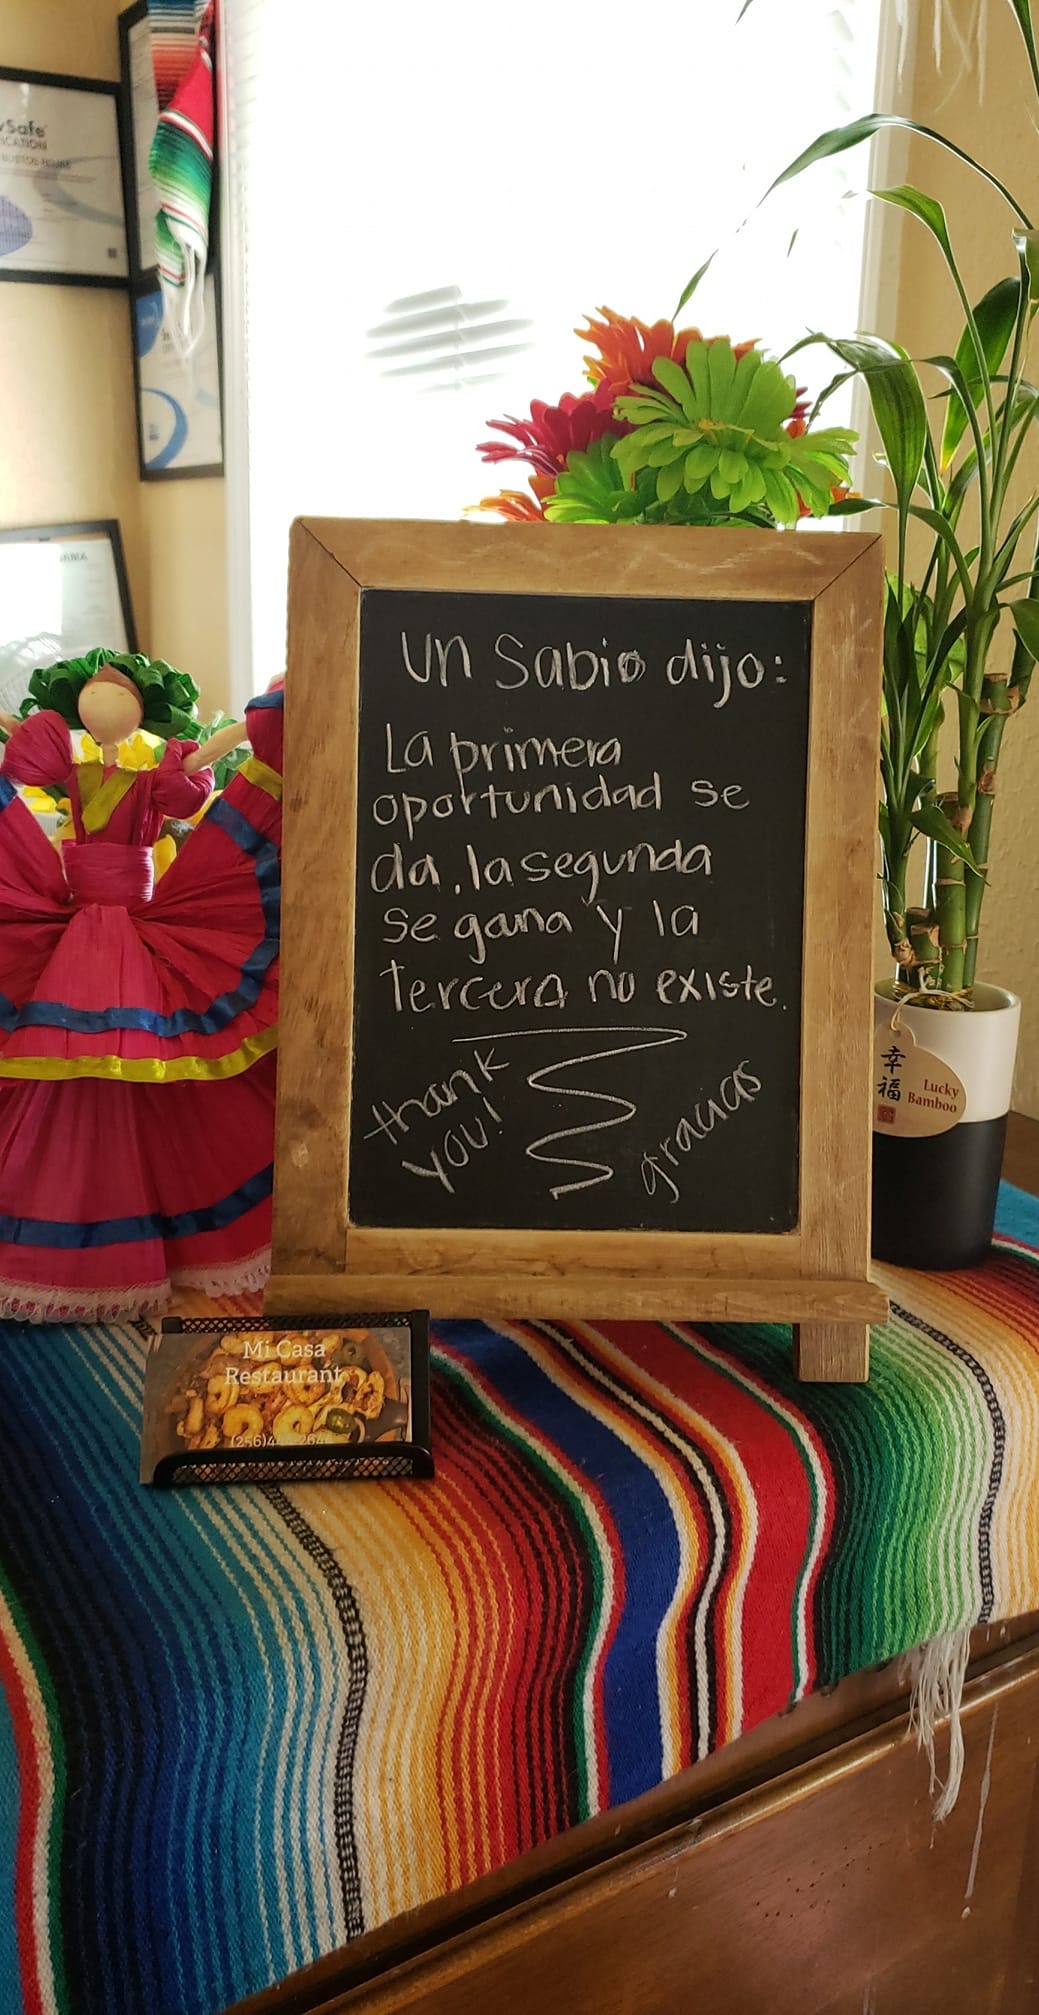 vSafe
ICATION
Un Sabio dijo:
La primera
oportunidad se
da, la segunda
se gana y la
tercera no existe.
thank
you!
gracias
幸
福
Lucky
Bamboo
Mi Casa
Restaurant